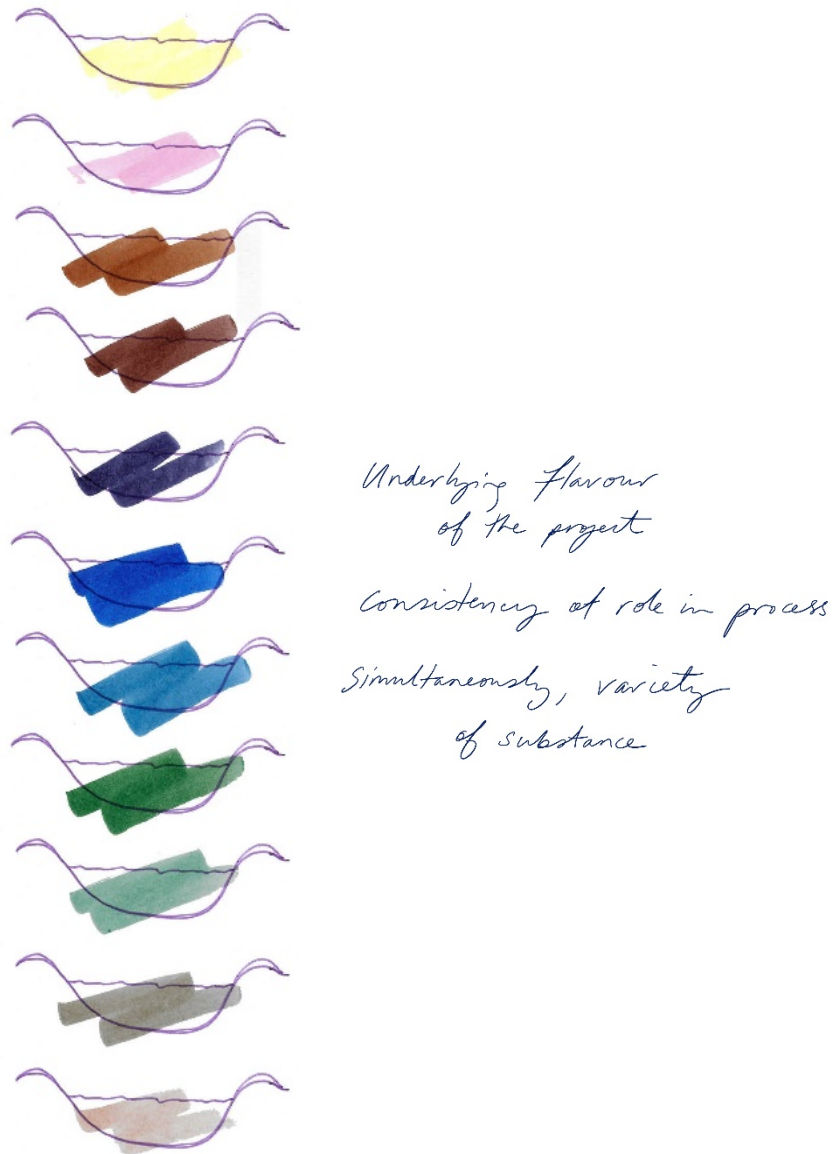 Underlying flavour
of the project
Consistency of role in process
Simultaneously, variety
of substance